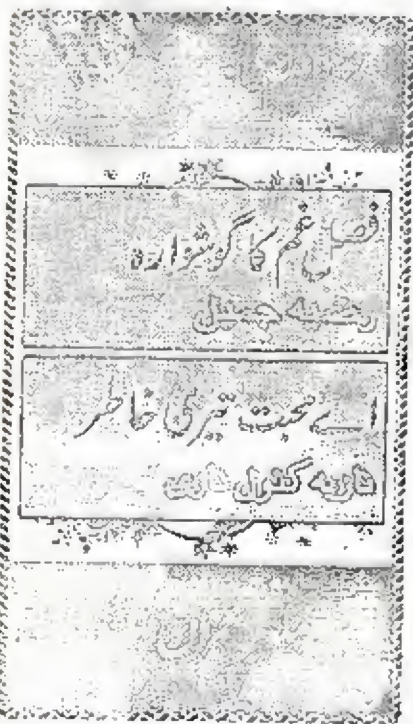 فصل غم کا گوشوارہ
رضیہ جمیل
اے محبت تیری خاطر
نادیہ کنول نازی